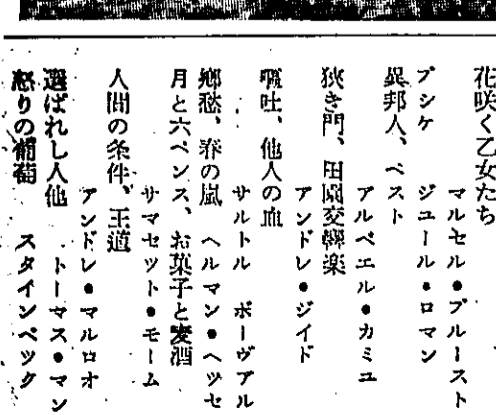 花咲く乙女たち
マルセル・プルースト
プシケ　ジュール・ロマン
異邦人、ペスト
アルベエル・カミユ
狭き門、田園交響楽
アンドレ・ジイド
嘔吐、他人の血
サルトル　ボーヴアル
郷愁、春の嵐　ヘルマン・ヘッセ
月と六ペンス、お菓子と麦酒
サマセット・モーム
人間の条件、王道
アンドレ・マルロオ
選ばれし人他　トーマス・マン
怒りの葡萄　スタインベック